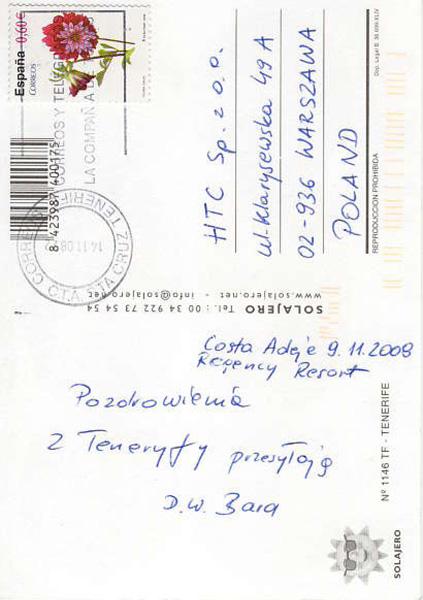 España
0,60€
CORREOS
CORREOS Y TELÉGR
LA COMPAÑIA D
8 423987 400175
CORREOS
14.11.08
C.T.A. STA CRUZ TENERIFE
HTC Sp. z o.o.
ul. Klarysewska 49 A
02-936 WARSZAWA
POLAND
REPRODUCCION PROHIBIDA
SOLAJERO Tel.: 00 34 922 73 54 54
www.solajero.net - info@solajero.net
Costa Adeje 9.11.2008
Regency Resort
Pozdrowienia
z Teneryfy przesyłają
D.W. Bara
Nº 1146 TF - TENERIFE
SOLAJERO